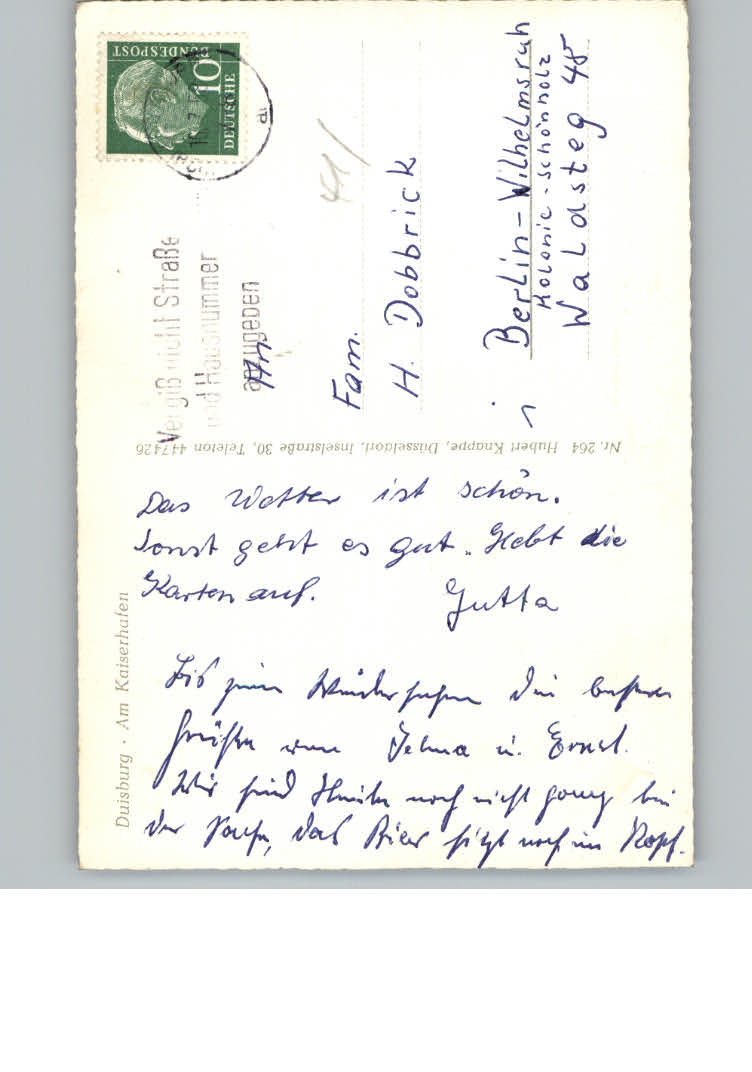 DEUTSCHE
BUNDESPOST
10
Vergiß nicht Straße
und Hausnummer
anzugeben
An
Fam.
H. Dobbrick
Berlin-Wilhelmsruh
Kolonie-Schönholz
Waldsteg 48
41/
Nr. 264 Hubert Knappe, Düsseldorf, Inselstraße 30, Telefon 447426
Duisburg · Am Kaiserhafen
Das Wetter ist schön.
Sonst geht es gut. Hebt die
Karten auf. Jutta
Bis zum Wiedersehen die besten
Grüße von u. Ernst.
Wir sind Heute noch nicht ganz bei
der Sache, das Bier sitzt noch im Kopf.